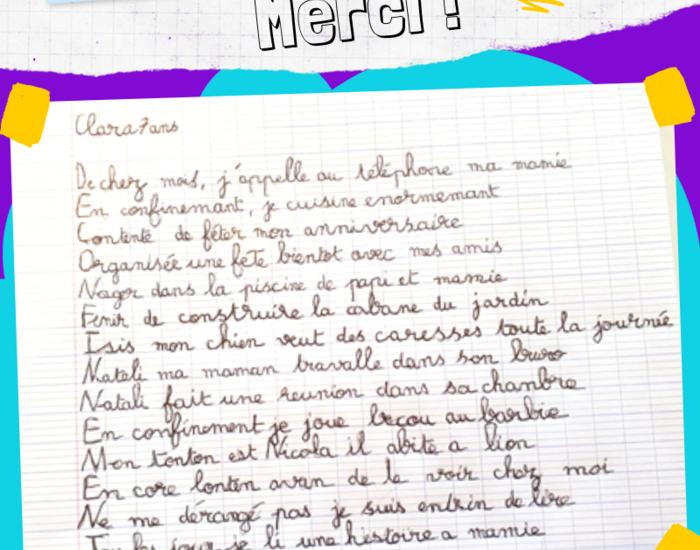 Merci !
Clara 7 ans
De chez mois, j'appelle au téléphone ma mamie
En confinemant, je cuisine enormemant
Contente de fêter mon anniversaire
Organisée une fete bientot avec mes amis
Nager dans la piscine de papi et mamie
Fenir de construire la cabane du jardin
Isis mon chien veut des caresses toute la journée
Natali ma maman travalle dans son buro
Natali fait une reunion dans sa chanbre
En confinement je joue becou au barbie
Mon tonton est Nicola il abite a lion
En core lonten avan de le voir chez moi
Ne me dérangé pas je suis entrin de lire
jour je li une histoire a mamie